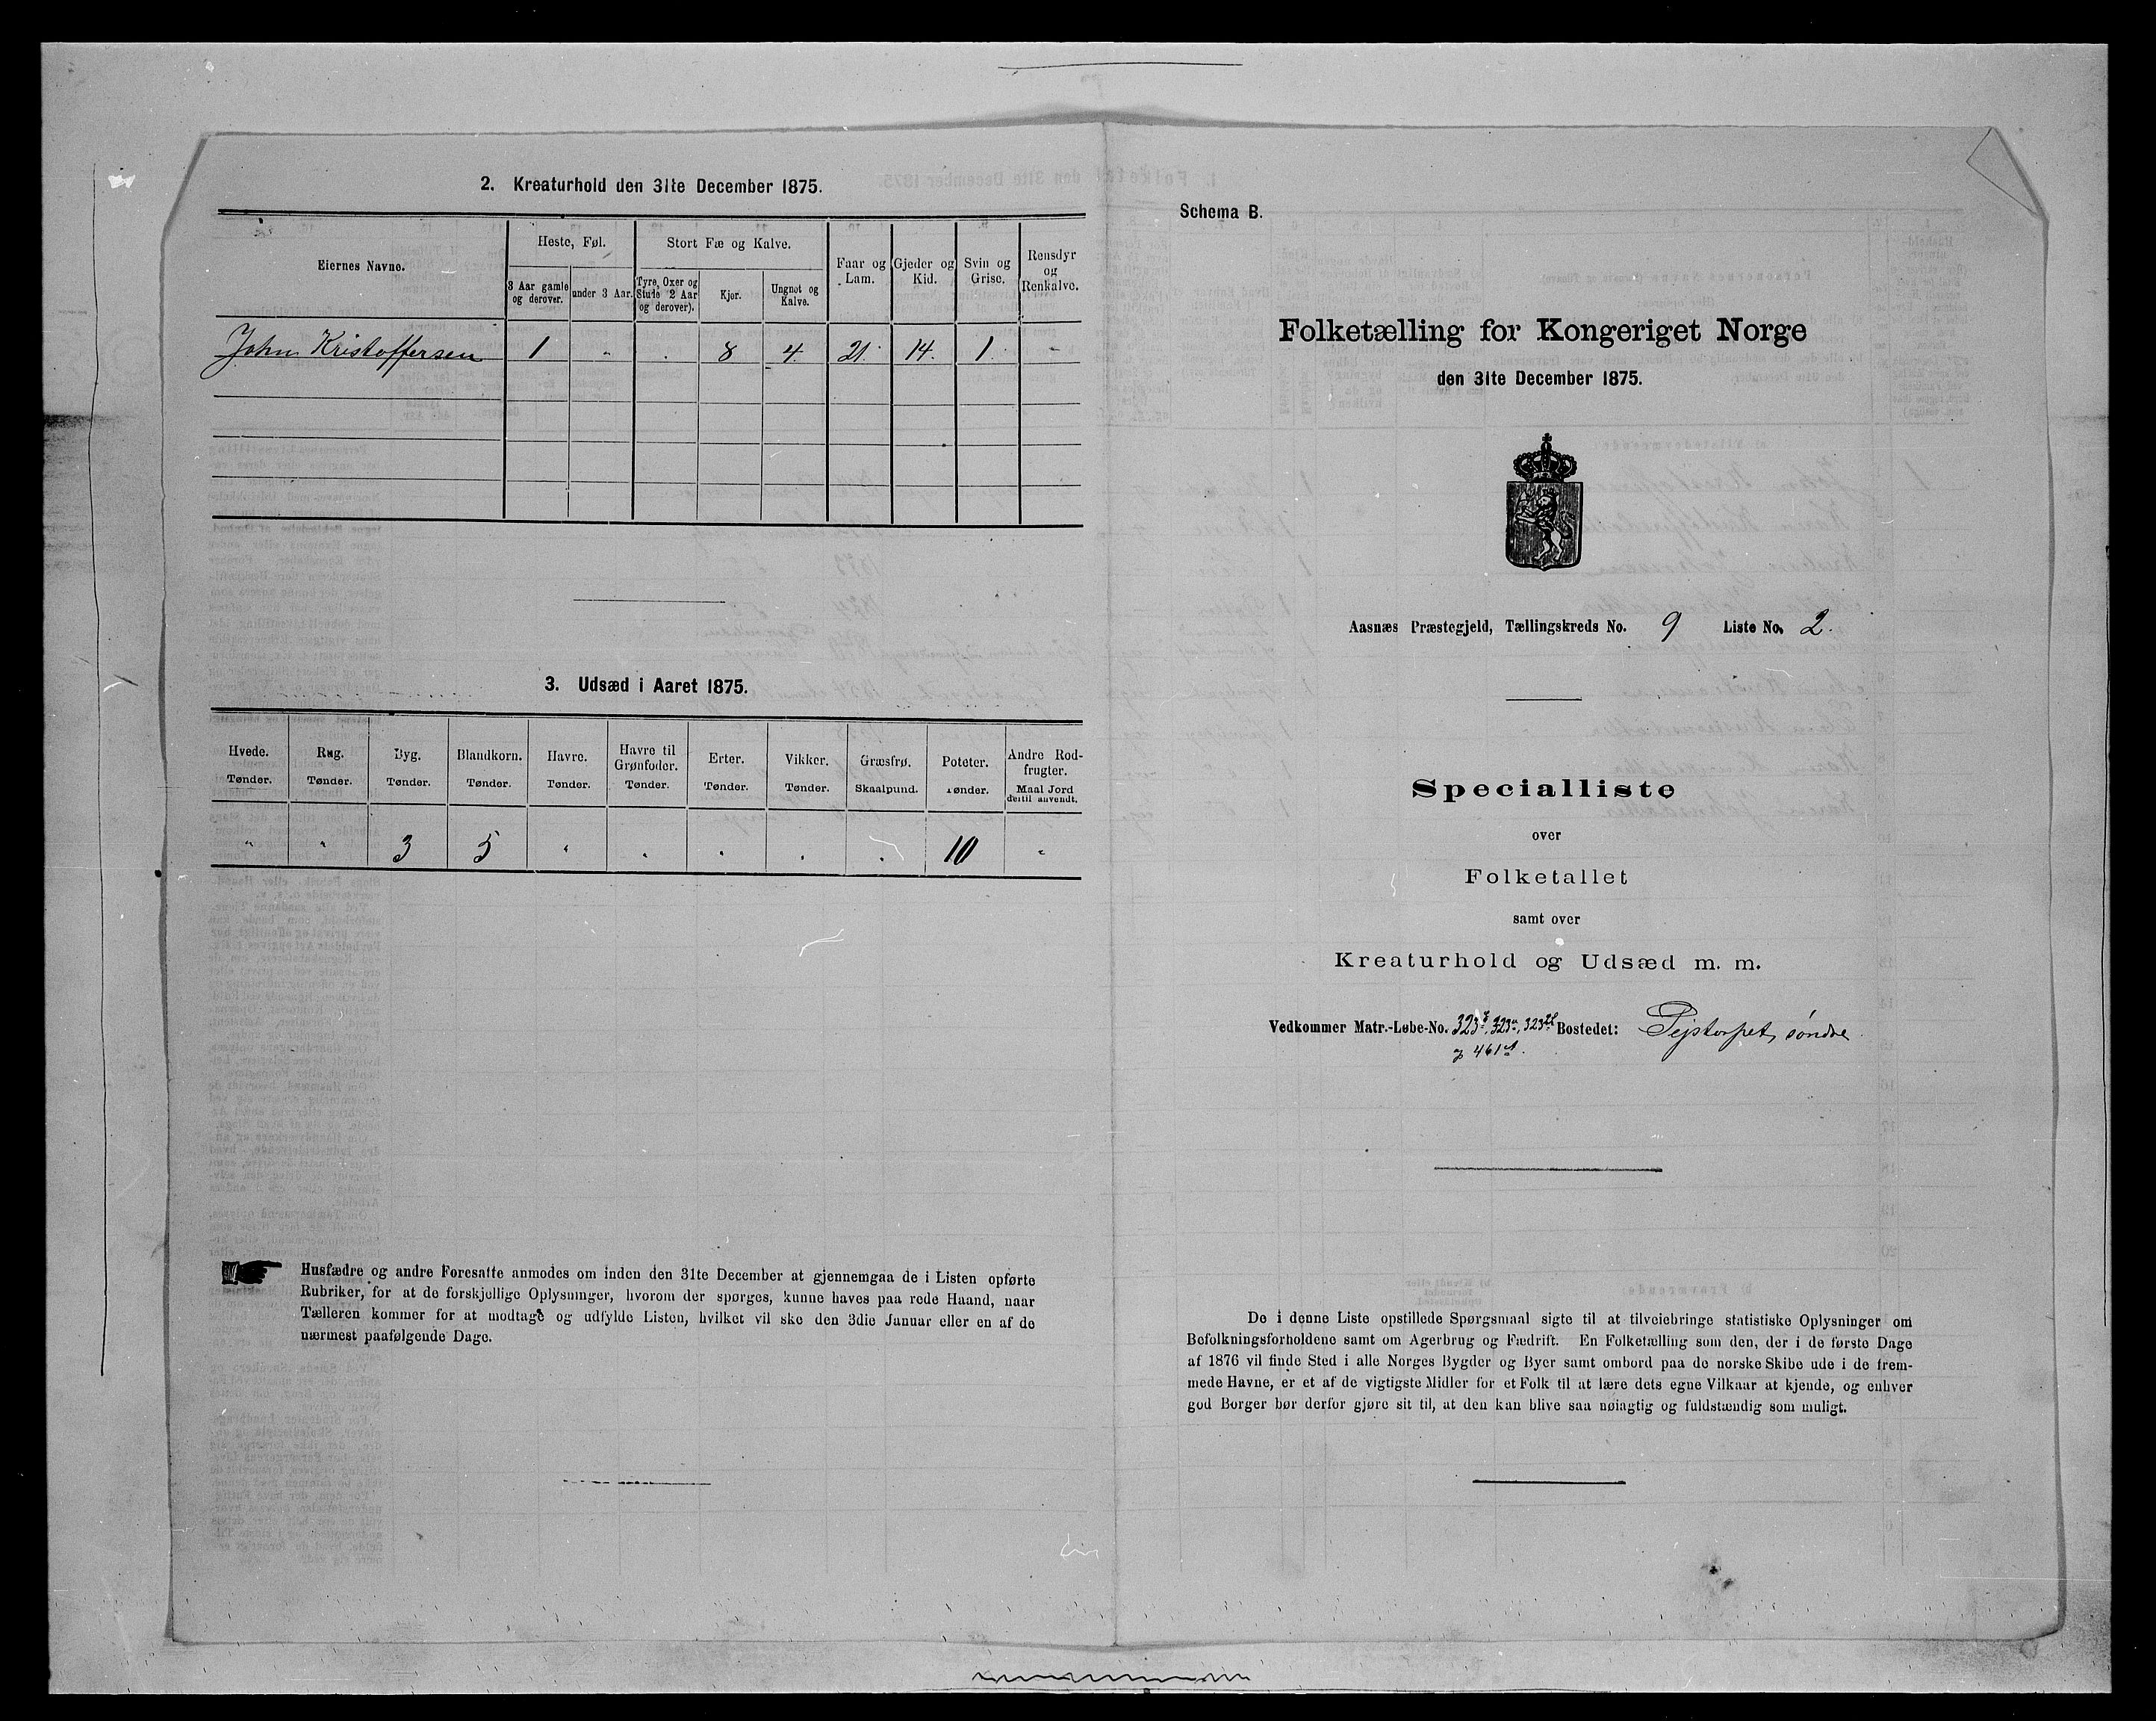 2. Kreaturhold den 31te December 1875.
Eiernes Navne.
Heste, Føl.
Stort Fæ og Kalve.
Faar og Lam.
Gjeder og Kid.
Svin og Grise.
Rensdyr og Renkalve.
3 Aar gamle og derover.
under 3 Aar.
Tyre, Oxer og Stude 2 Aar og derover).
Kjør.
Ungnøt og Kalve.
John Kristoffersen 1 " . 8 4. 21. 14. 1. "
3. Udsæd i Aaret 1875.
Hvede. Rug. Byg. Blandkorn. Havre. Havre til Grønfoder. Erter. Vikker. Græsfrø. Poteter. Andre Rodfrugter.
Tønder. Tønder. Tønder. Tønder. Tønder. Tønder. Tønder. Tønder. Skaalpund. Tønder. Maal Jord dertil anvendt.
" " 3 5 " . . . . 10 "
Husfædre og andre Foresatte anmodes om inden den 31te December at gjennemgaa de i Listen opførte
Rubriker, for at de forskjellige Oplysninger, hvorom der spørges, kunne haves paa rede Haand, naar
Tælleren kommer for at modtage og udfylde Listen, hvilket vil ske den 3die Januar eller en af de
nærmest paafølgende Dage.
Schema B.
Folketælling for Kongeriget Norge
den 31te December 1875.
Aasnæs Præstegjeld, Tællingskreds No. 9 Liste No. 2.
Specialliste
over
Folketallet
samt over
Kreaturhold og Udsæd m. m.
Vedkommer Matr.-Løbe-No. Bostedet: søndre
De i denne Liste opstillede Spørgsmaal sigte til at tilveiebringe statistiske Oplysninger om
Befolkningsforholdene samt om Agerbrug og Fædrift. En Folketælling som den, der i de første Dage
af 1876 vil finde Sted i alle Norges Bygder og Byer samt ombord paa de norske Skibe ude i de frem-
mede Havne, er et af de vigtigste Midler for et Folk til at lære dets egne Vilkaar at kjende, og enhver
god Borger bør derfor gjøre sit til, at den kan blive saa nøiagtig og fuldstændig som muligt.